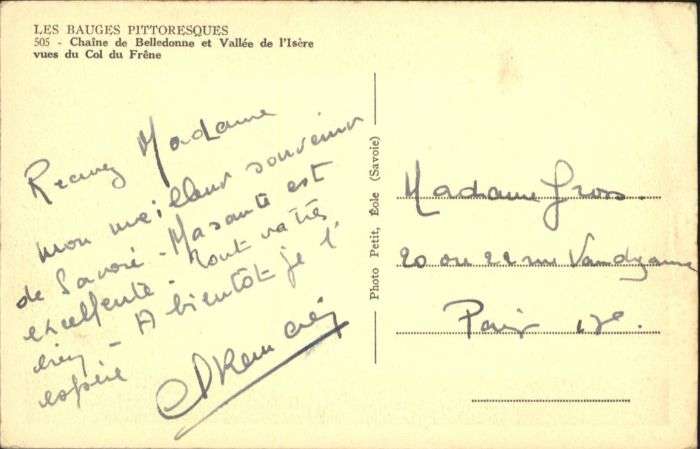 LES BAUGES PITTORESQUES
505 - Chaîne de Belledonne et Vallée de l'Isère
vues du Col du Frêne
Recevez Madame
mon meilleur souvenir
de Savoie - Ma santé est
excellente - Tout va très
bien - A bientôt je l'
espère
Photo Petit, Éole (Savoie)
Madame Gross
20 ou 22 rue Vandezanne
Paris 13e.